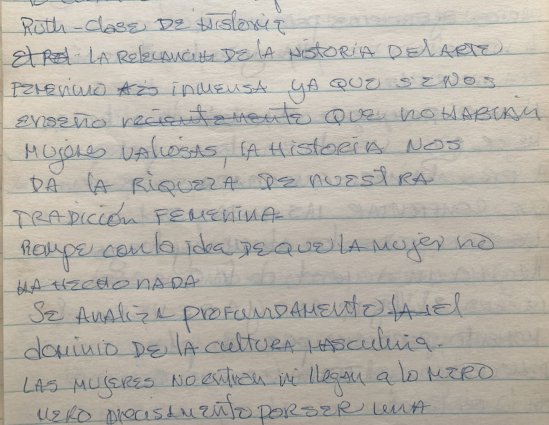 Ruth-Clase DE Historia
LA RELEVANCIA DE LA HISTORIA DEL ARTE
FEMENINO ES INMENSA YA QUE SE NOS
ENSEÑO recientemente QUE NO HABIAN
MUJERES VALIOSAS, LA HISTORIA NOS
DA LA RIQUEZA DE NUESTRA
TRADICIÓN FEMENINA-
Rompe con la idea DE QUE LA MUJER NO
HA HECHO NADA
SE ANALIZA PROFUNDAMENTE el
dominio DE LA CULTURA MASCULINA.
LAS MUJERES NO entran ni llegan a lo MERO
MERO precisamente POR SER UNA